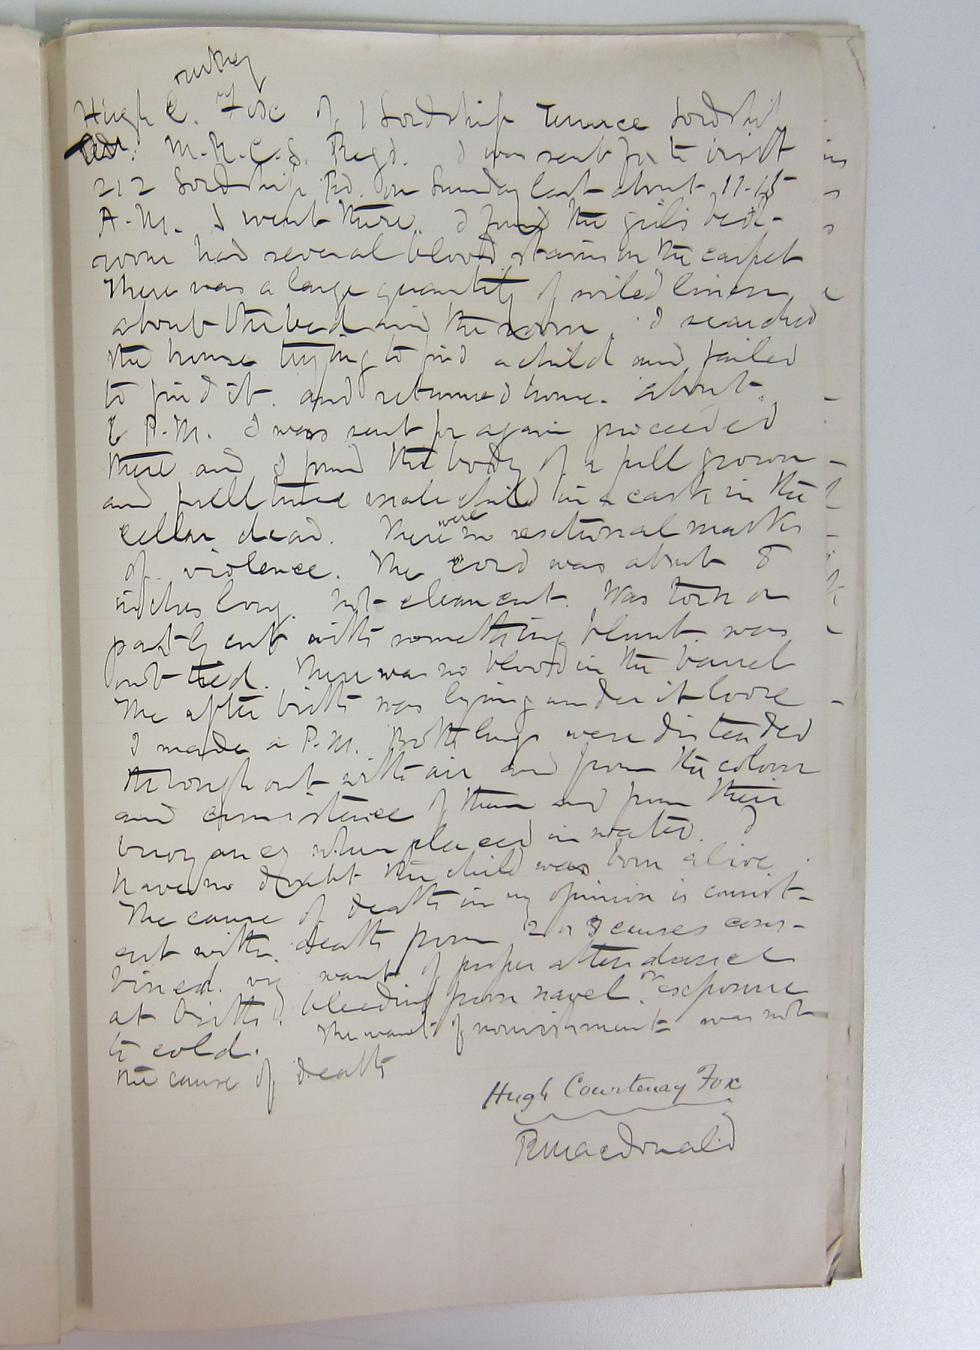 Hugh C. Fox of 1 Lordship Terrace Lordship
M.R.C.S. Regd. I was sent for to visit
212 Lordship Rd. on Sunday last about 11-45
A.M. I went there. I found the girls bed-
room had several blood stains on the carpet
There was a large quantity of soiled linen
about the bed and the room. I searched
the house trying to find a child and failed
to find it. and returned home. about
P.M. I was sent for again proceeded
there and I found the body of a full grown
and full time male child in a cask in the
cellar dead. There were no external marks
of violence. The cord was about 8
inches long. Not clean cut. Was torn or
partly cut with something blunt. was
not tied. There was no blood in the barrel
The after birth was lying under it loose
I made a P.M. Both lungs were distended
throughout with air and from the colour
and consistence of them and from their
buoyancy when placed in water. I
have no doubt the child was born alive.
The cause of death in my opinion is consist-
ent with death from 2 or 3 causes com-
bined. viz want of proper attendance
at birth. bleeding from navel. or exposure
to cold. The want of nourishment was not
the cause of death
Hugh Courtenay Fox
R Macdonald